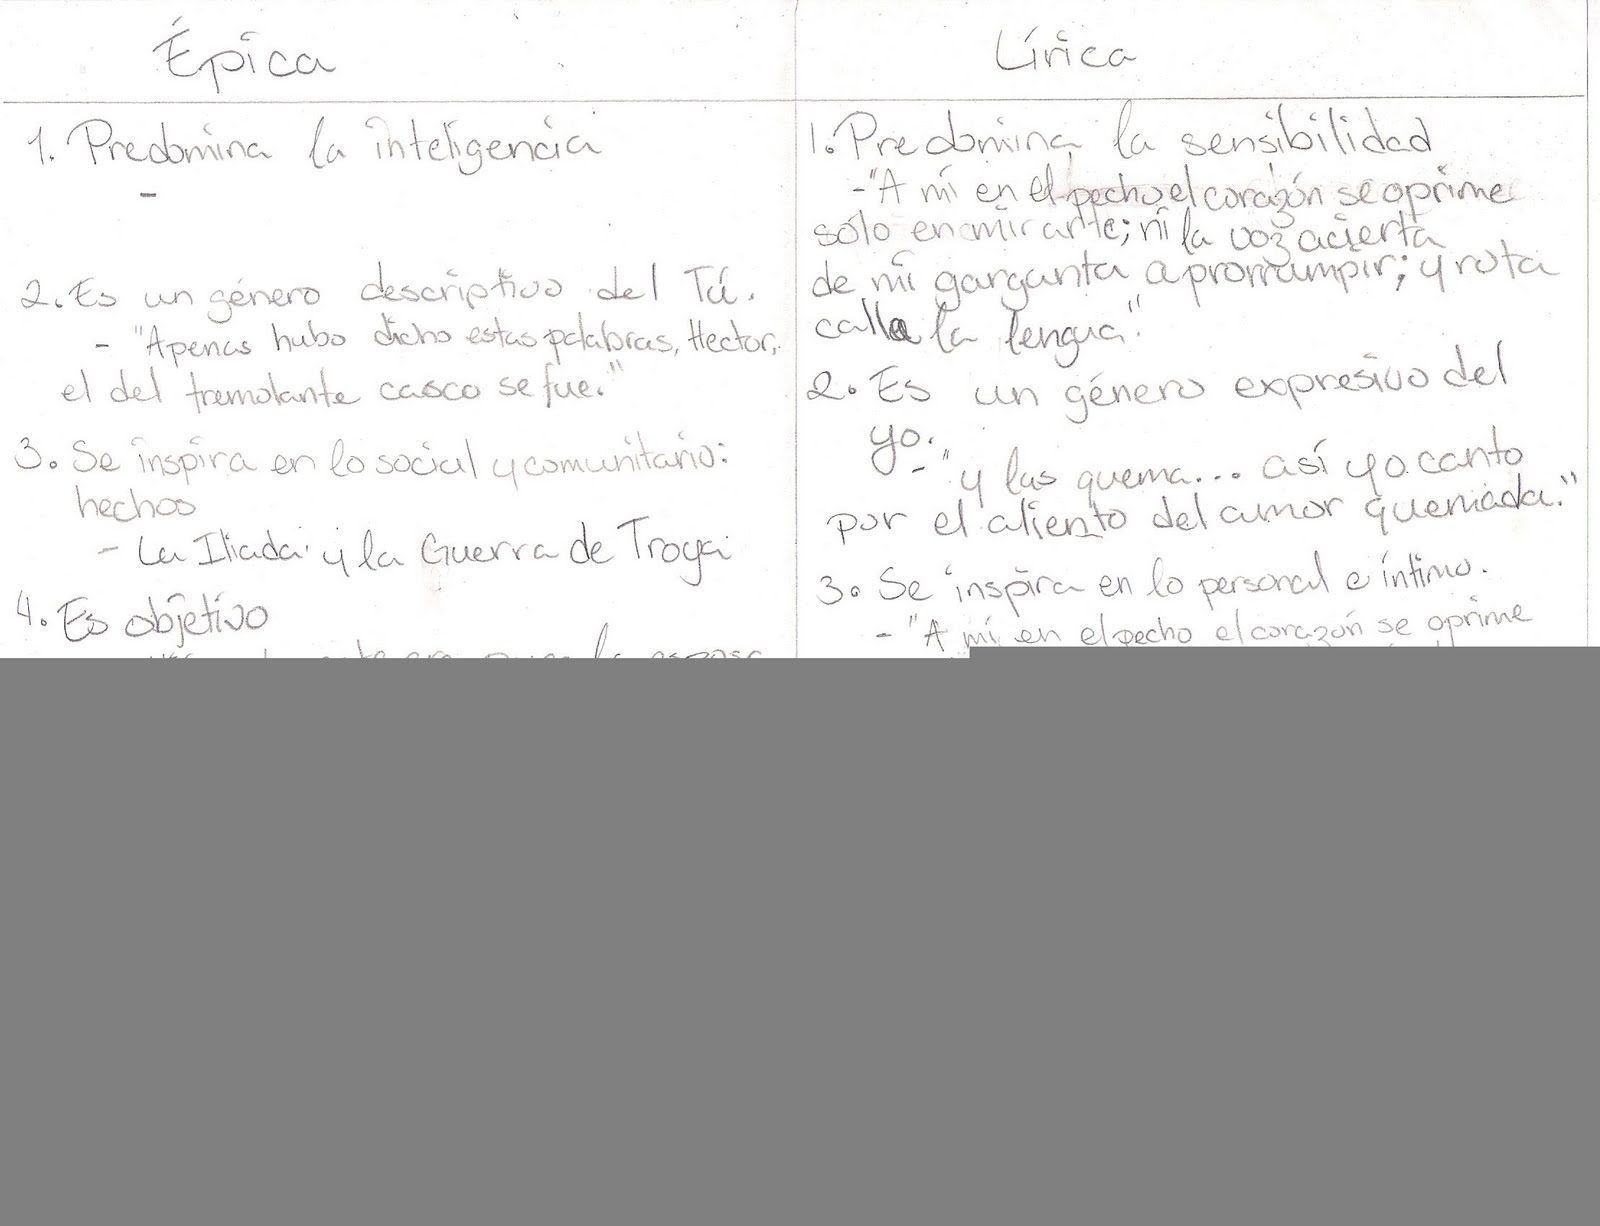 Épica
1. Predomina la inteligencia
-
2. Es un género descriptivo del Tú.
- "Apenas hubo dicho estas palabras, Hector,
el del tremolante casco se fue."
3. Se inspira en lo social y comunitario:
hechos
- La Iliada y la Guerra de Troya
4. Es objetivo
la esposa
Lírica
1. Predomina la sensibilidad
- "A mí en el pecho el corazón se oprime
sólo en mirarte; ni la voz acierta
de mi garganta a prorrumpir; y rota
calla la lengua"
2. Es un género expresivo del
yo.
- "y las quema... así yo canto
por el aliento del amor quemada."
3. Se inspira en lo personal e íntimo.
- "A mí en el pecho el corazón se oprime